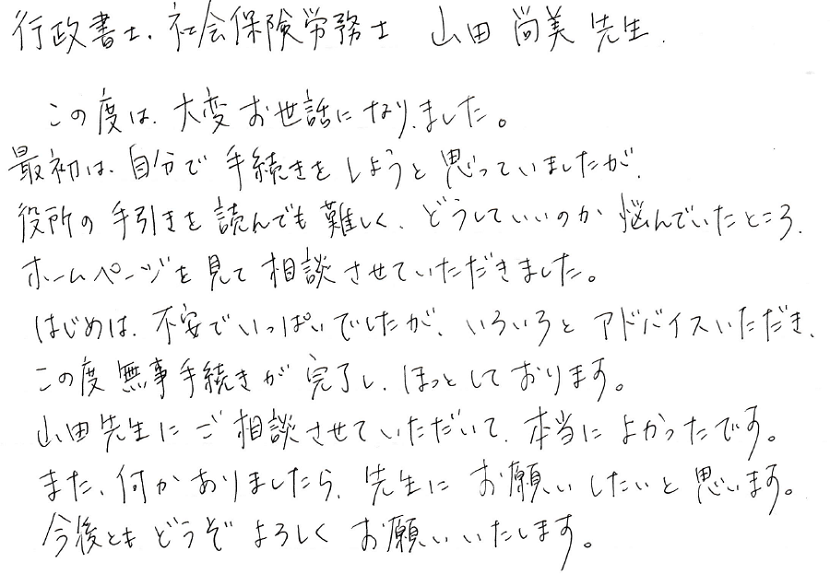 行政書士、社会保険労務士 山田 尚美 先生.
この度は、大変お世話になりました。
最初は、自分で手続きをしようと思っていましたが、
役所の手引きを読んでも難しく、どうしていいのか悩んでいたところ、
ホームページを見て相談させていただきました。
はじめは、不安でいっぱいでしたが、いろいろとアドバイスいただき、
この度無事手続きが完了し、ほっとしております。
山田先生にご相談させていただいて、本当によかったです。
また、何かありましたら、先生にお願いしたいと思います。
今後ともどうぞよろしくお願いいたします。